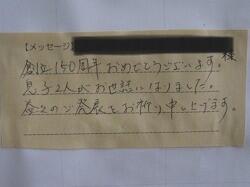 【メッセージ】
様
創立150周年おめでとうございます。
息子2人がお世話になりました。
益々のご発展をお祈り申し上げます。